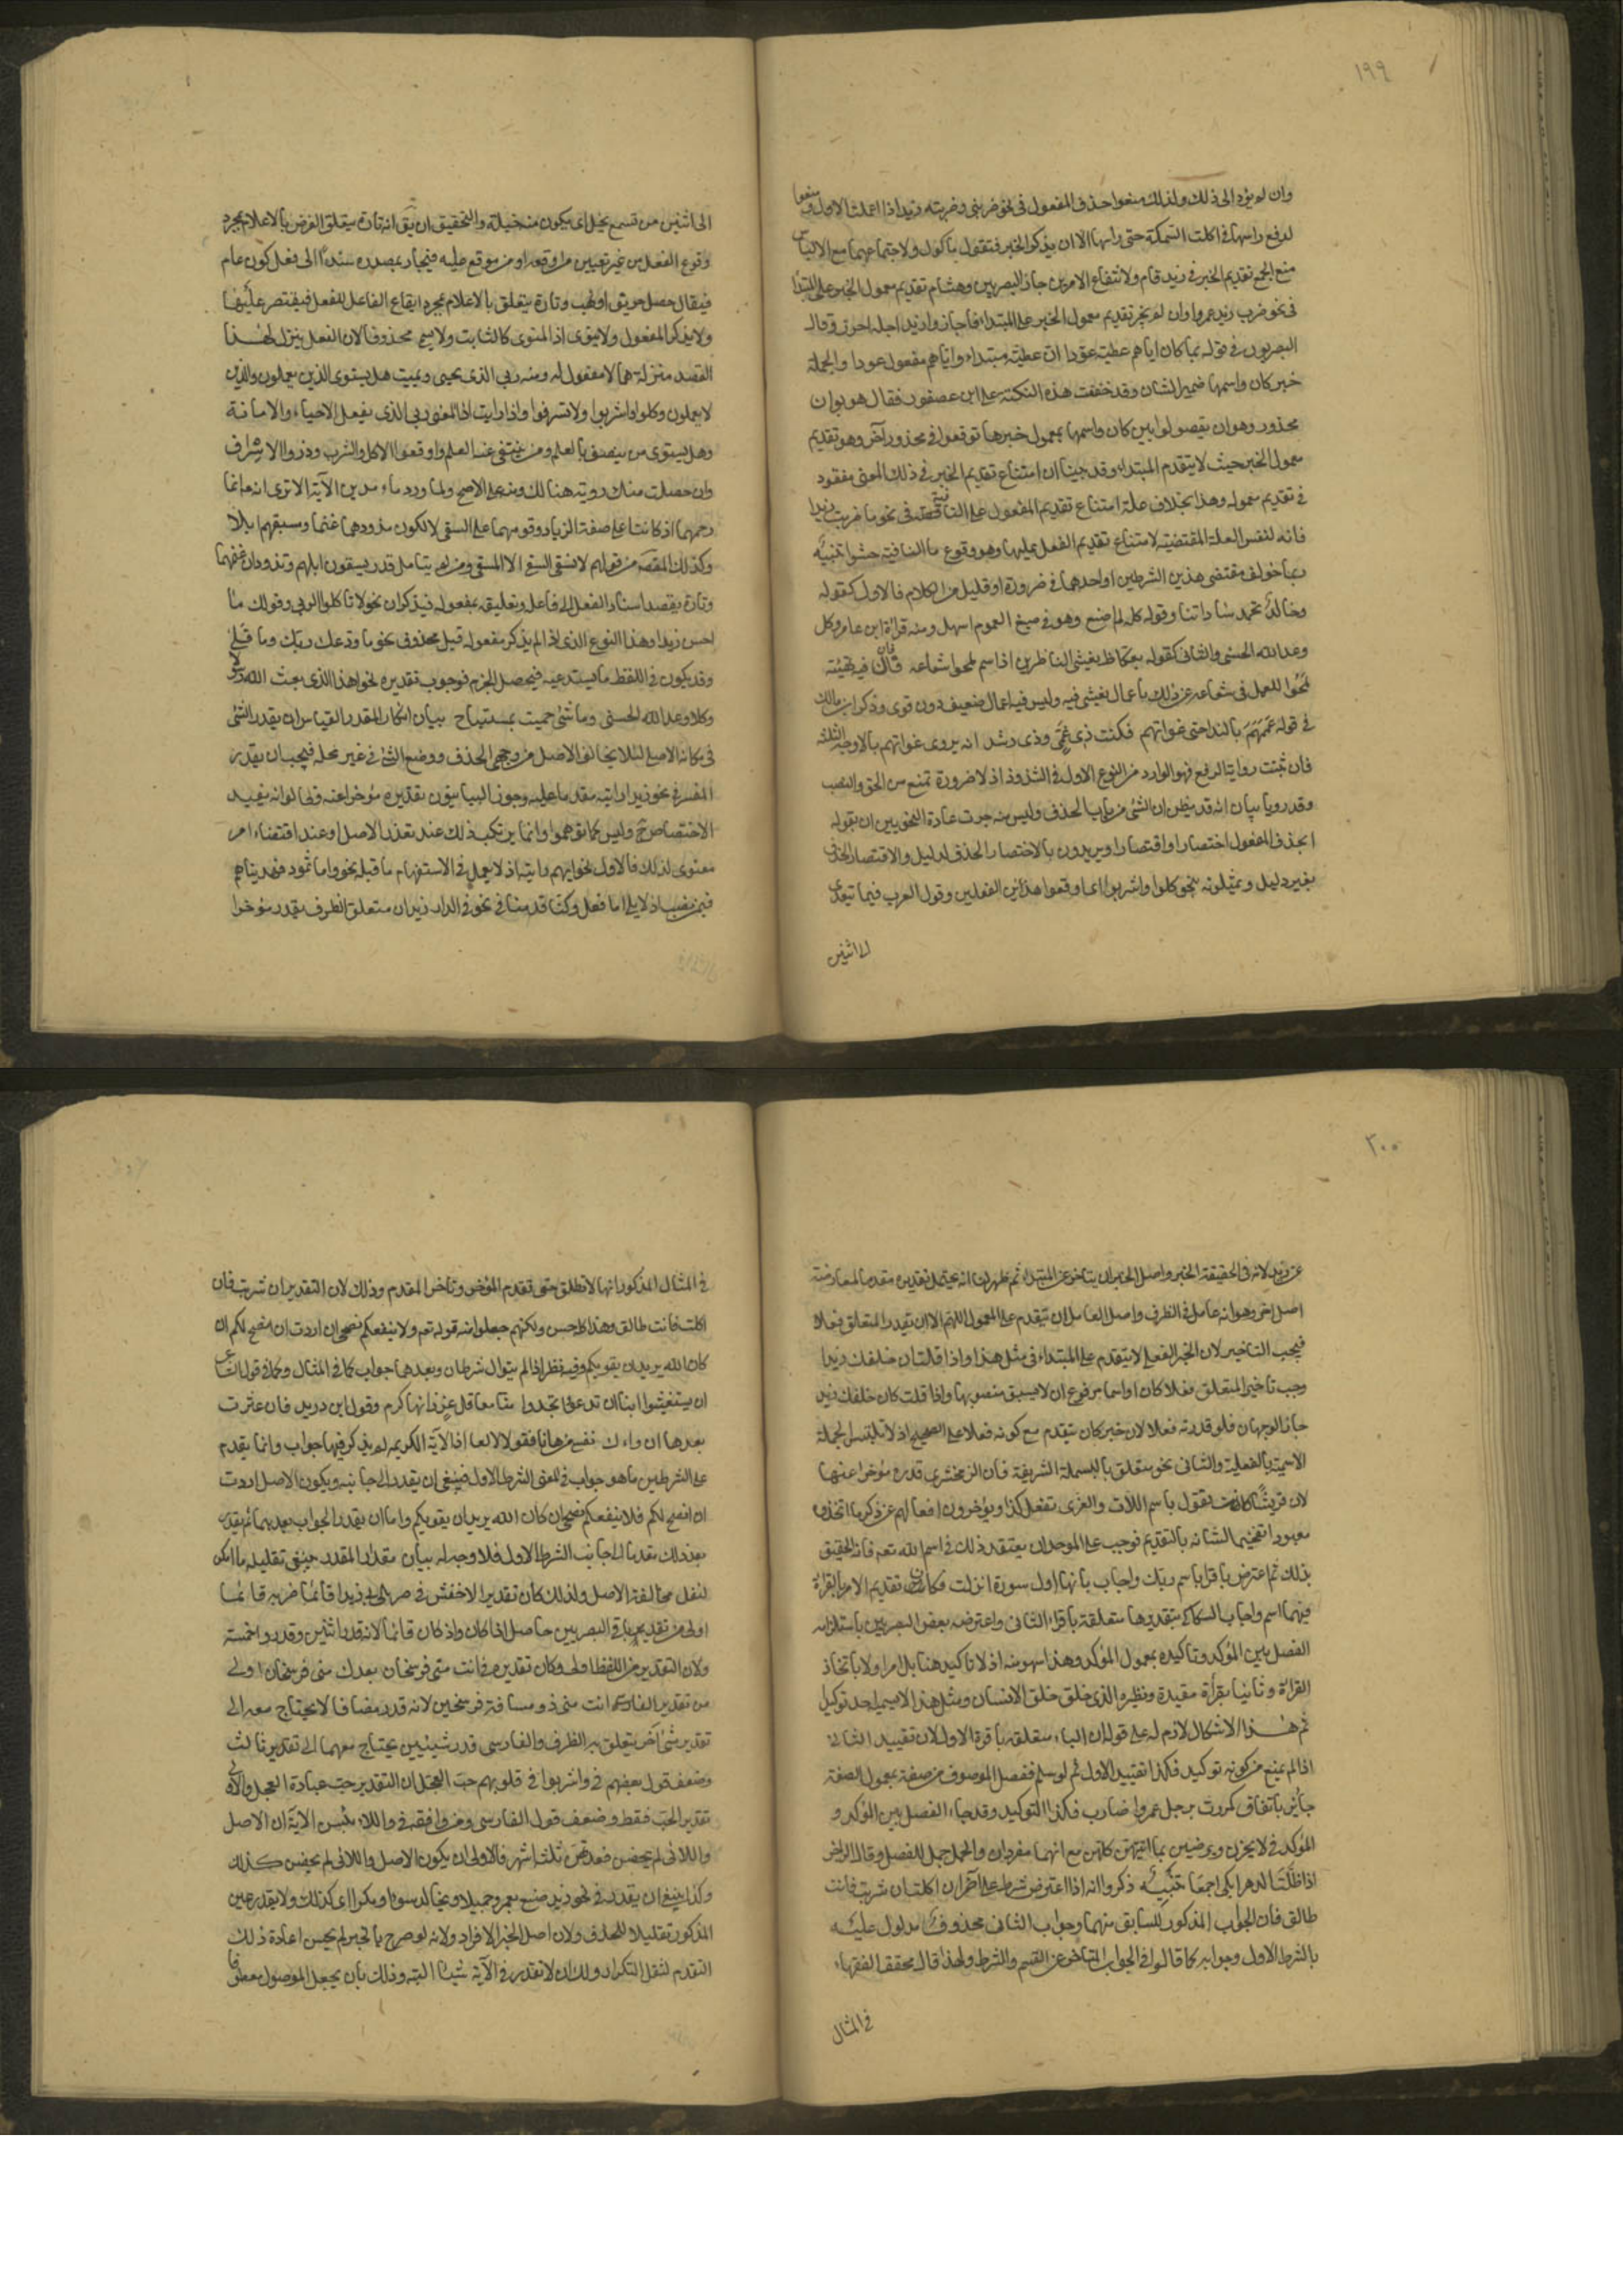 ١٩٩
وان لم يؤد الى ذلك ولذلك منعوا حذف المفعول فى نحو ضربنى وضربته وزيد اذا اعملت الاول ومنعوا
لرفع راسها فى اكلت السمكة حتى راسها الا ان يذكر الخبر فتقول ماكول ولاجتماعهما مع الالباس
منع الجمع تقديم الخبر فى زيد قام ولانتفاع الامرين جاز البصريين وهشام تقديم معمول الخبر على المبتدا
فى نحو ضرب زيد عمروا وان لم يجز تقديم معمول الخبر على المبتداء فاجاز وازيد اجله احرز وقال
البصريون فى قوله بما كان اياهم عطية عودا ان عطية مبتداء واياهم مفعول عودا والجملة
خبر كان واسمها ضمير الشان وقد خفيت هذه النكتة على ابن عصفور فقال هربوا من
محذور وهو ان يفصلوا بين كان واسمها بمعمول خبرها فوقعوا فى محذور آخر وهو تقديم
معمول الخبر حيث لا يتقدم المبتداء وقد بينا ان امتناع تقديم الخبر فى ذلك المعنى مفقود
فى تقديم معموله وهذا بخلاف علة امتناع تقديم المفعول على النافية فى نحو ما ضربت زيدا
فانه لنفس العلة المقتضية لامتناع تقديم الفعل عليها وهو وقوع ما النافية حشوا تنبيه
ربما خولف مقتضى هذين الشرطين او احدهما فى ضرورة او قليل من الكلام فالاول كقوله
وخالد تحمد ساداتنا وقوله كله لم اصنع وهو فى صيغ العموم اسهل ومنه قراءة ابن عامر وكل
وعد الله الحسنى والثانى كقوله بعكاظ يغشى الناظرين اذا سم لمحوا شعاعه فان فيه تهيئة
لمحوا للعمل فى شعاعه عن ذلك باعمال يغشى فيه وليس فيه اعمال ضعيف دون قوى وذكر ابن مالك
فى قوله عممتهم بالندا حتى غواتهم فكنت ذى غى وذى رشد انه يروى غواتهم بالاوجه الثلثة
فان ثبتت رواية الرفع فهو الوارد من النوع الاول فى الشذوذ اذ لا ضرورة تمنع من الجر والنصب
وقد رويا بيان انه قد يظن ان الشئ من باب الحذف وليس منه جرت عادة النحويين ان يقولوا
يحذف المفعول اختصارا واقتصارا ويريدون بالاختصار الحذف لدليل والاقتصار الحذف
بغير دليل ويمثلونه بنحو كلوا واشربوا اى اوقعوا هذين الفعلين وقول العرب فيما يتعدى
الى اثنين
الى اثنين من تسمع يخل اى يكون منه خيلة والتحقيق ان يق انه تارة يتعلق الغرض بالاعلام بمجرد
وقوع الفعل من غير تعيين من اوقعه او من وقع عليه فيجاء بمصدره مسندا الى فعل كون عام
فيقال حصل حريق او نهب وتارة يتعلق بالاعلام بمجرد ايقاع الفاعل للفعل فيقتصر عليهما
ولا يذكر المفعول ولا ينوى اذ المنوى كالثابت ولا يسمى محذوفا لان الفعل ينزل لهذا
القصد منزلة ما لا مفعول له ومنه ربى الذى يحيى ويميت هل يستوى الذين يعلمون والذين
لا يعلمون وكلوا واشربوا ولا تسرفوا واذا رايت اذ المعنى ربى الذى يفعل الاحياء والاماتة
وهل يستوى من يتصف بالعلم ومن ينتفى عنه العلم واوقعوا الاكل والشرب وذروا الاسراف
وان حصلت منك روية هنالك ومنه على الاصح ولما ورد ماء مدين الآية الا ترى انه انما
رحمهما اذ كانتا على صفة الزياد وقومهما على السقى لا لكون مذودهما غنما ومسقيهم ابلا
وكذلك المقصة من قولهم لا نسقى السقى لا المسقى ومن لم يتامل قدر يسقون ابلهم وتذودان غنمهما
وتارة يقصد اسناد الفعل الى فاعله وتعليقه بمفعوله فيذكران نحو لا تاكلوا الربى وقولك ما
احسن زيدا وهذا النوع الذى اذا لم يذكر مفعوله قيل محذوف نحو ما ودعك ربك وما قلى
وقد يكون فى اللفظ ما يستدعيه فيحصل الجزم بوجوب تقديره نحو اهذا الذى بعث الله رسولا
وكلا وعد الله الحسنى وما شئ حميت بمستباح بيان امكان المقدر القياس ان يقدر الشئ
فى مكانه الاصلى لئلا يخالف الاصل من وجهى الحذف ووضع الشئ فى غير محله فيجب ان يقدر
المفسر فى نحو زيدا رايته مقدما عليه وجوز البيانيون تقديره مؤخرا عنه وقالوا انه يفيد
الاختصاص ح وليس كما توهموا وانما يرتكب ذلك عند تعذر الاصل او عند اقتضاء امر
معنوى لذلك فالاول نحو ايهم رايته اذ لا يعمل فى الاستفهام ما قبله نحو واما ثمود فهديناهم
فيمن نصب اذ لا يلى اما فعل وكنا قدمنا فى نحو فى الدار زيد ان متعلق الظرف يقدر مؤخرا
٢٠٠
عن زيد لانه فى الحقيقة الخبر واصل الخبر ان يتاخر عن المبتداء ثم ظهر لنا انه يحتمل تقديره مقدما لمعارضة
اصل اخر وهو انه عامل فى الظرف واصل العامل ان يتقدم على المعمول اللهم الا ان يقدر المتعلق فعلا
فيجب التاخير لان الخبر الفعلى لا يتقدم على المبتداء فى مثل هذا واذا قلت ان خلفك زيدا
وجب تاخير المتعلق فعلا كان او اسما لان مرفوع ان لا يسبق منصوبها واذا قلت كان خلفك زيد
جاز الوجهان ولو قدرته فعلا لان خبر كان يتقدم مع كونه فعلا على الصحيح اذ لا تلتبس الجملة
الاسمية بالفعلية والثانى نحو متعلق باء البسملة الشريفة فان الزمخشرى قدره مؤخرا عنها
لان قريشا كانت تقول باسم اللات والعزى نفعل كذا ويؤخرون افعالهم عن ذكر ما اتخذوه
معبودا تفخيما لشانه بالتقديم فوجب على الموحد ان يعتقد ذلك فى اسم الله تعه فانه الحقيق
بذلك ثم اعترض باقرا باسم ربك واجاب بانها اول سورة انزلت فكان تقديم الامر بالقراءة
فيها اهم واجاب السكاكى بتقديرها متعلقة باقراء الثانى واعترضه بعض البصريين باستلزامه
الفصل بين المؤكد وتاكيده بمعمول المؤكد وهذا سهو منه اذ لا تاكيد هنا بل امر اولا باتخاذ
القراءة وثانيا بقراءة مقيدة ونظيره الذى خلق خلق الانسان ومثل هذا لا يسميه احد توكيدا
ثم هذا الاشكال لازم له على قوله ان الباء متعلقة باقراء الاول لان تقييد الثانى
اذا لم يمنع من كونه توكيدا فكذا تقييد الاول ثم لو سلم ففصل الموصوف من صفته بمعمول الصفة
جائز باتفاق كمررت برجل عمروا ضارب فكذا التوكيد وقد جاء الفصل بين المؤكد و
المؤكد فى لا يحزن ويرضين بما اتيتهن كلهن مع انهما مفردان والجمل احمل للفصل وقال الراجز
اذا ظللت الدهر ابكى اجمعا تنبيه ذكروا انه اذا اعترض شرط على آخر ان اكلت ان شربت فانت
طالق فان الجواب المذكور للسابق منهما وجواب الثانى محذوف مدلول عليه
بالشرط الاول وجوابه كما قالوا فى الجواب المتاخر عن القسم والشرط ولهذا قال محققوا الفقهاء
فى المثال
فى المثال المذكور انها لا تطلق حتى تقدم المؤخر وتاخر المقدم وذلك لان التقدير ان شربت فان
اكلت فانت طالق وهذا كله حسن ولكنهم جعلوا منه قوله تعه ولا ينفعكم نصحى ان اردت ان انصح لكم ان
كان الله يريد ان يغويكم وفيه نظر اذ لم يتوال شرطان وبعدهما جواب كما فى المثال وكما فى قول الشاعر
ان يستغيثوا بنا ان تدعوا تجدوا منا معاقل عز زانها كرم وقول ابن دريد فان عثرت
بعدها ان والت نفسى من هاتا فقولا لا لعا اذ الآية الكريمة لم يذكر فيها جواب وانما يقدم
على الشرطين ما هو جواب فى المعنى للشرط الاول فينبغى ان يقدر الى جانبه ويكون الاصل اردت
ان انصح لكم فلا ينفعكم نصحى ان كان الله يريد ان يغويكم واما ان يقدر الجواب بعدهما ثم يقدر
بعد ذلك مقدما الى جانب الشرط الاول فلا وجه له بيان مقدار المقدر ينبغى تقليله ما امكن
لتقل مخالفة الاصل ولذلك كان تقدير الاخفش فى ضربى زيدا قائما ضربه قائما
اولى من تقدير باقى البصريين حاصل اذا كان واذ كان قائما لانه قدر اثنين وقدروا خمسة
ولان التقدير من اللفظ اولى وكان تقديره فى انت منى فرسخان بعدك منى فرسخان اولى
من تقدير الفارسى انت منى ذو مسافة فرسخين لانه قدر مضافا لا يحتاج معه الى
تقدير شئ آخر يتعلق به الظرف والفارسى قدر شيئين يحتاج معهما الى تقدير ثالث
وضعف قول بعضهم فى واشربوا فى قلوبهم حب العجل ان التقدير حب عبادة العجل والاولى
تقدير الحب فقط وضعف قول الفارسى ومن وافقه فى واللاء يئسن الآية ان الاصل
واللائى لم يحضن فعدتهن ثلثة اشهر فالاولى ان يكون الاصل واللائى لم يحضن كذلك
وكذا ينبغى ان يقدر فى نحو زيد صنع بعمرو جميلا وبخالد سوءا وبكر اى كذلك ولا يقدر عين
المذكور تقليلا للحذف ولان اصل الخبر الافراد ولانه لو صرح بالخبر لم يحسن اعادة ذلك
المتقدم لثقل التكرار ولك ان لا تقدر فى الآية شيئا البتة وذلك بان يجعل الموصول معطوفا